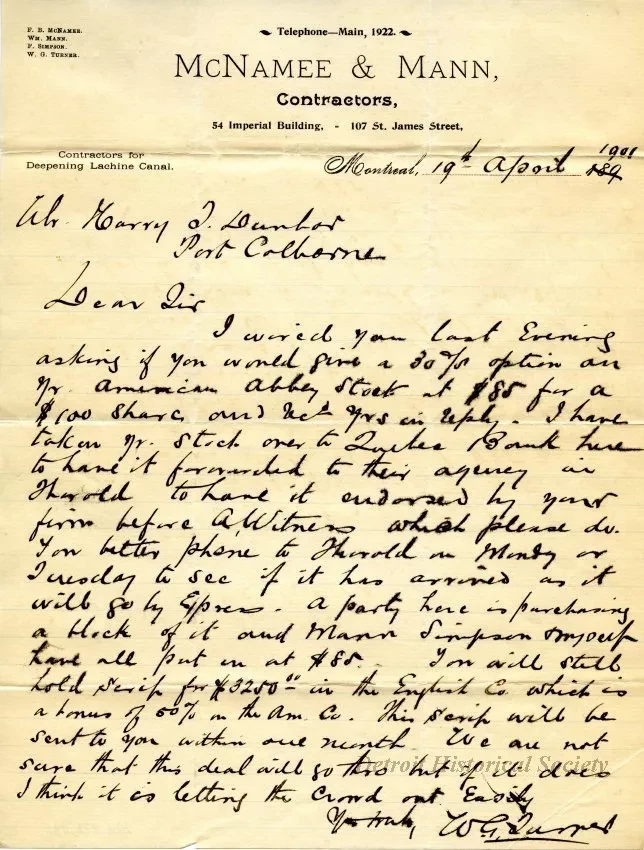 F. B. McNamee.
Wm. Mann.
F. Simpson.
W. G. Turner.
Telephone—Main, 1922.
McNamee & Mann,
Contractors,
54 Imperial Building, - 107 St. James Street,
Contractors for
Deepening Lachine Canal.
Montreal, 19th April 1901 189
Mr. Harry J. Dunbar
Port Colborne
Dear Sir
I wired you last Evening
asking if you would give a 30% option on
Yr. American Abbey Stock at $85 for a
$100 share, and Recd Yrs in reply. I have
taken yr. stock over to Quebec Bank here
to have it forwarded to their agency in
Thorold to have it endorsed by your
firm before A Witness which please do.
You better phone to Thorold on Monday or
Tuesday to see if it has arrived as it
will go by Express. A party here is purchasing
a block of it and Mann Simpson & myself
have all put in at $85. You will still
hold Scrip for $3250.00 in the English Co which is
a bonus of 50% on the Am. Co. This Scrip will be
sent to you within one month We are not
sure that this deal will go thro but if it does
I think it is letting the crowd out Easily
Yrs truly, W G Turner
Detroit Historical Society